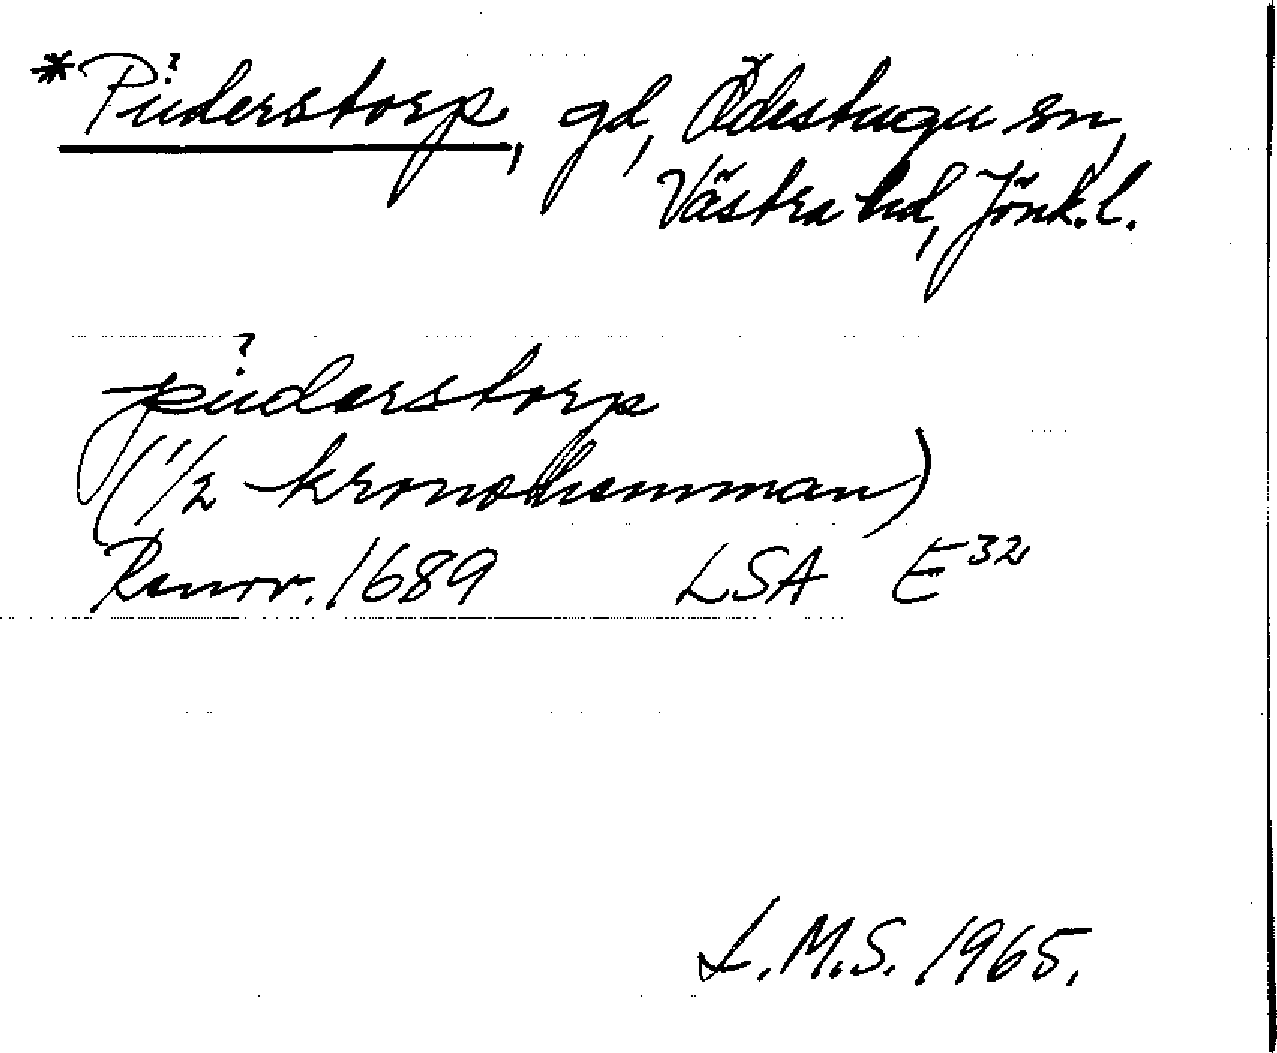 *Puderstorp, gd, Ödestugu sn,
Västra hd, Jönk. l.
puderstorp
(1/2 kronohemman)
Ranrv. 1689 LSA E32
L.M.S. 1965.